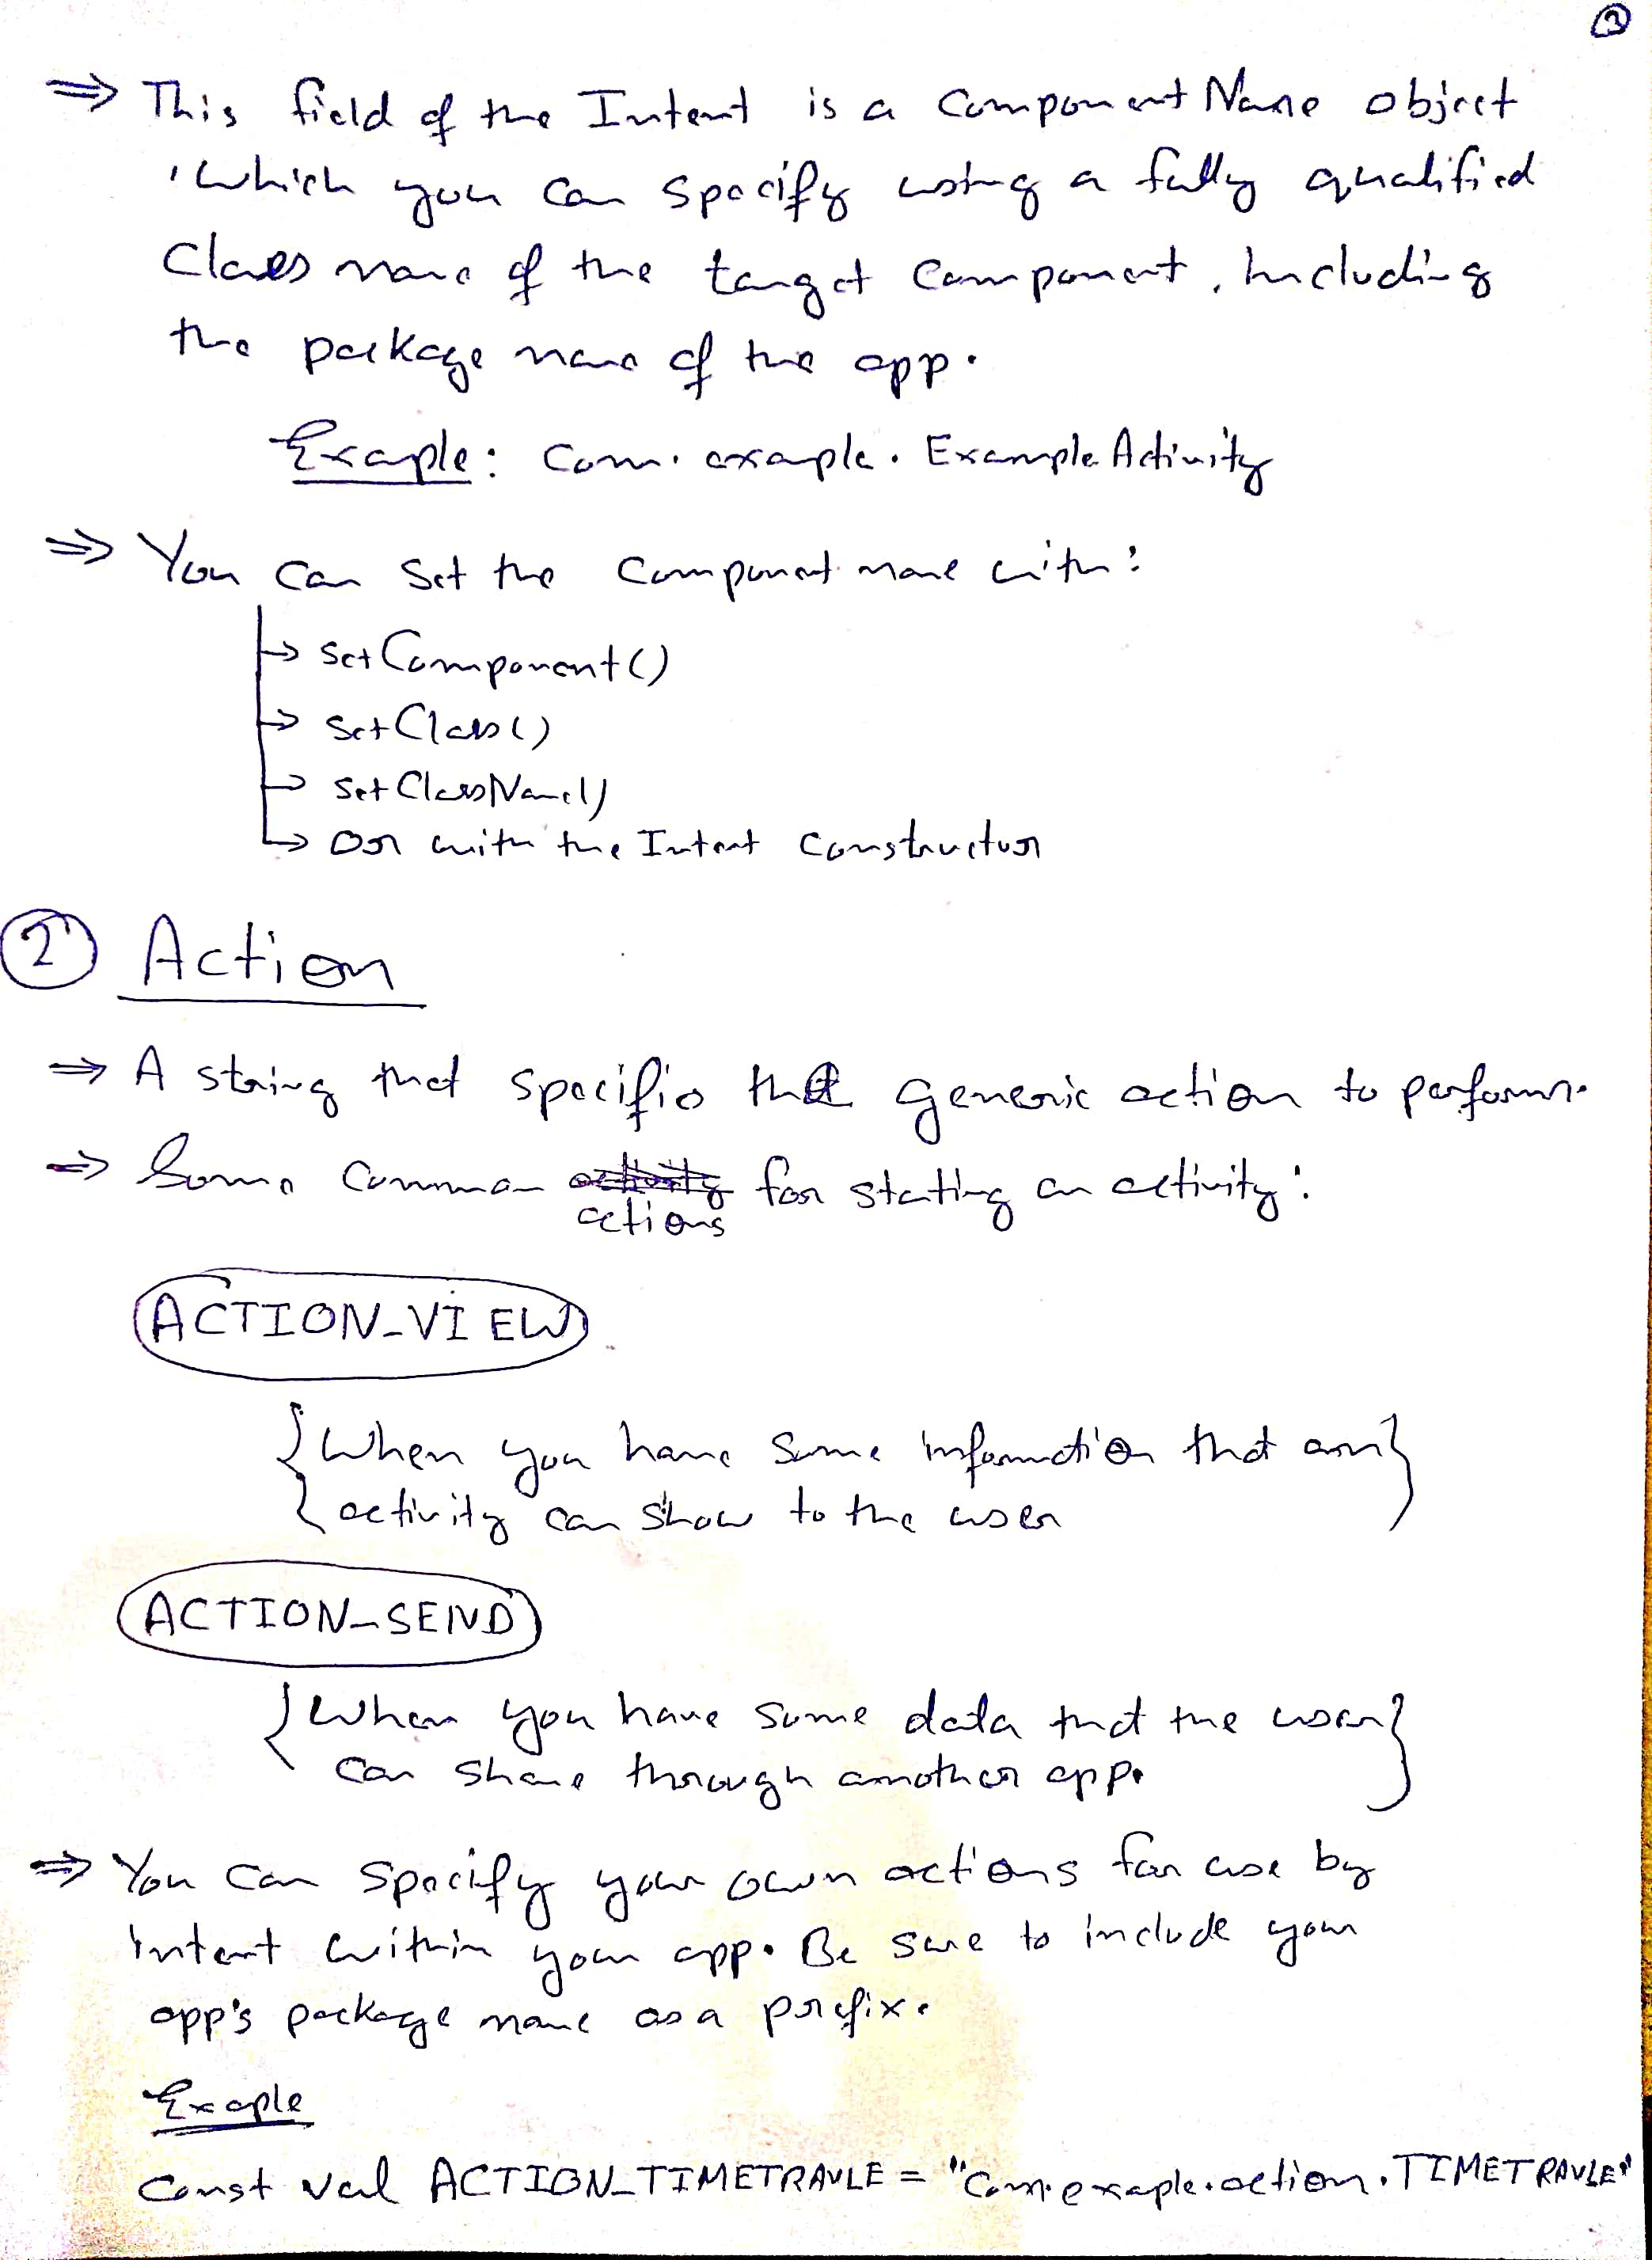 2
⇒ This field of the Intent is a Component Name object
, which you can specify using a fully qualified
Class name of the target component, Including
the package name of the app.
Exaple: com.exaple.ExampleActivity
⇒ You can set the component name with:
→ setComponent()
→ setClass()
→ setClassName()
→ Or with the Intent Constructor
② Action
⇒ A string that specifis the generic action to perform.
⇒ Some common actions for stating an activity:
ACTION_VIEW
{When you have some information that an}
activity can show to the user
ACTION_SEND
{When you have some data that the user}
can share through another app.
⇒ You can specify your own actions for use by
intent within your app. Be sure to include your
app's package name as a prefix.
Exaple
const val ACTION_TIMETRAVLE = "com.exaple.action.TIMETRAVLE"